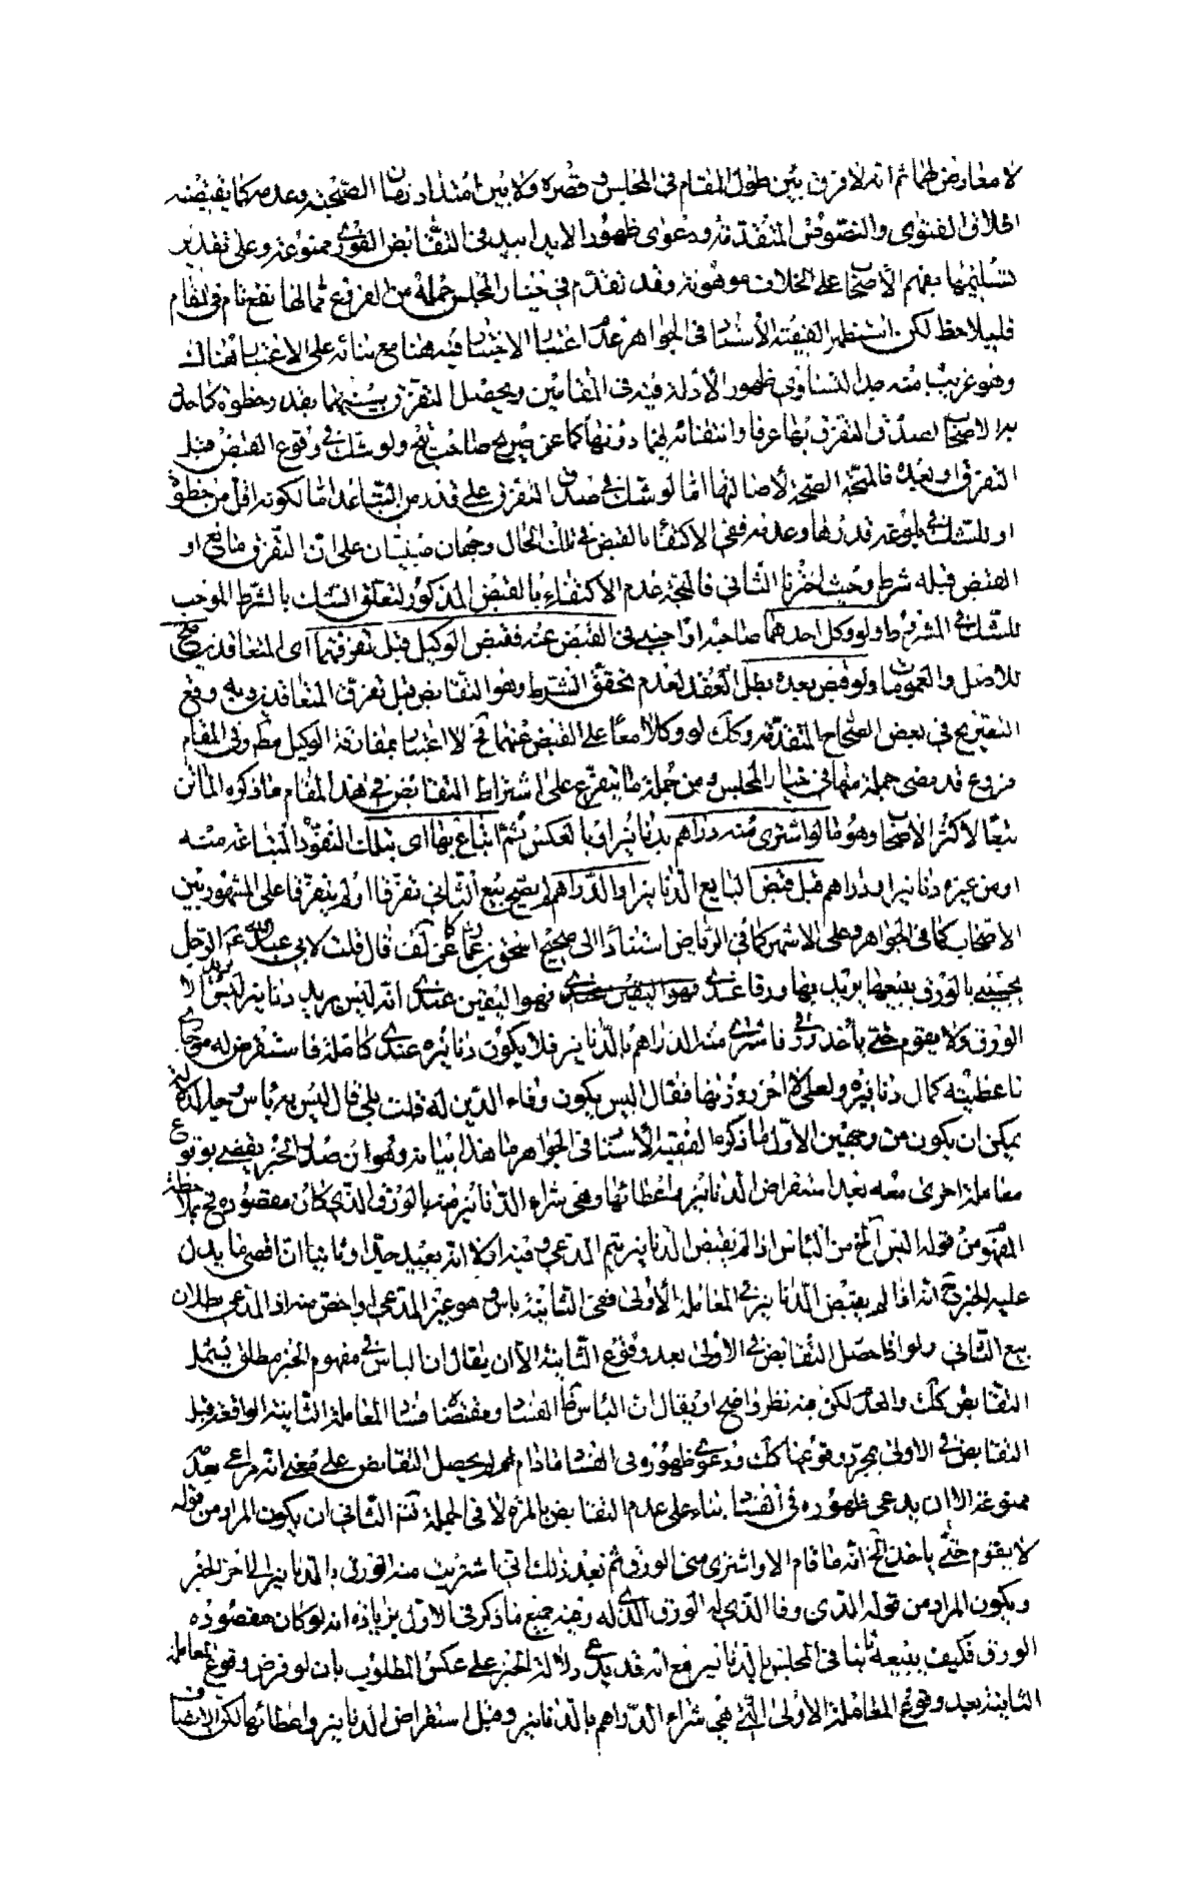 لا معارض لهما ثم انه لا فرق بين طول المقام فى المجلس و قصره ولا بين امتداد زمان الصحبة وعدمه كما يقتضيه
اطلاق الفتوى والنصوص المتقدمة ودعوى ظهور الايدابيد فى التقابض الفورى ممنوعة وعلى تقدير
تسليمها بفهم الاصحاب على الخلاف موهونة وقد تقدم فى خيار المجلس جملة من الفروع مما لها نفع تام فى المقام
فليلاحظ لكن استظهر الفقيه الأستاد فى الجواهر عدم اعتبار الاختيار فيه هنا مع بنائه على الاعتبار هناك
وهو غريب منه جدا لتساوى ظهور الأدلة فيه فى المقامين ويحصل التفرق بينهما بقدر خطوة كاحد
الاصحاب لصدق التفرق بها عرفا وانتفائه فيما دونها كما عن صريح صاحب ولو شك فى وقوع القبض قبل
التفرق او بعده فالمتجه الصحة لأصالتها امّا لو شك فى صدق التفرق على قدر من التباعد امّا لكونه اقل من خطوة
او للشك فى بلوغه قدرها وعدمه ففى الاكتفاء بالقبض فى تلك الحال وجهان مبنيان على ان التفرق مانع او
القبض قبله شرط وحيث اخترنا الثانى فالمتجه عدم الاكتفاء بالقبض المذكور لتعلق الشك بالشرط الموجب
للشك فى المشروط ولو وكل احدهما صاحبه او اجنبى فى القبض عنه فقبض الوكيل قبل تفرقهما اى المتعاقدين صح
للاصل والعمومات ولو قبض بعده بطل العقد لعدم تحقق الشرط وهو التقابض قبل تفرق المتعاقدين وبه وقع
التصريح فى بعض الصحاح المتقدمة وكك لو وكلا معا على القبض عنهما لا اعتبار بمفارقة الوكيل مطم وفى المقام
فروع قد مضى جملة منها فى خيار المجلس ومن جملة ما يتفرع على اشتراط التقابض فى هذا المقام ما ذكره الماتن
تبعا لأكثر الاصحاب وهو ما لو اشترى منه دراهم بدنانير او بالعكس ثم ابتاع بها اى بتلك النقود المبتاعة منه
او من غيره دنانير او دراهم قبل قبض البايع الدنانير او الدراهم لم يصح بيع الثانى تفرقا او لم يتفرقا على المشهور بين
الاصحاب كما فى الجواهر وعلى الاشهر كما فى الرياض استنادا الى صحيح اسحق بن عمار قال قلت لابى عبد الله ع الرجل
يجيئنى بالورق يبيعها يريد بها ورقا عندى فهو اليقين عندى انه ليس يريد دنانير ليس يريد الا
الورق ولا يقوم حتى يأخذ ورقى فاشترى منه الدراهم بالدنانير فلا يكون دنانيره عندى كاملة فاستقرض له من جارى
فاعطيته كمال دنانيره ولعلى لا احرز وزنها فقال اليس يكون وفاء الدين له قلت بلى قال ليس به باس
يمكن ان يكون من وجهين الاول ما ذكره الفقيه الأستاد فى الجواهر ما هذا بيانه وهو ان صدر الخبر يقضى بوقوع
معاملة اخرى معه بعد استقراض الدنانير واعطائها وهى شراء الدنانير منه بالورق الذى كان مقصوده بملاحظة
المفهوم من قوله اليس الخ من البأس اذا لم يقبض الدنانير يتم المدعى وفيه اولا انه بعيد جدا وثانيا ان اقصى ما يدل
عليه الخبر ح انه اذا لم يقبض الدنانير فى المعاملة الأولى ففى الثانية باس وهو غير المدعى او اخص منه اذ المدعى بطلان
بيع الثانى ولو اذا حصل التقابض فى الاولى بعد وقوع الثانية الا ان يقال ان الباس فى مفهوم الخبر مطلق يشمل
التقابض كك والحد لكن فيه نظر واضح او يقال ان البأس ظ الفساد ومقتضاه فساد المعاملة الثانية الواقعة قبل
التقابض فى الاولى بمجرد وقوعها كك ودعوى ظهوره فى الفساد مادام لم يحصل التقابض على معنى انه مراعى بعدم
ممنوعة الا ان يدعى ظهوره فى الفساد بناء على عدم التقابض بالمرة لا فى الجملة الثانى ان يكون المراد من قوله
لا يقوم حتى ياخذ الخ انه ما قام الا واشترى منى الورق ثم بعد ذلك انى اشتريت منه الورق بالدنانير الى اخر الخبر
ويكون المراد من قوله الذى وفا الذى له الورق الذى له وفيه جميع ما ذكر فى الاول بزيادة انه لو كان مقصوده
الورق فكيف يبيعه ثانيا فى المجلس بالدنانير مع انه قد يدعى دلالة الخبر على عكس المطلوب بان لو فرض وقوع المعاملة
الثانية بعد وقوع المعاملة الاولى التى هى شراء الدراهم بالدنانير وقبل استقراض الدنانير واعطائها لكن الانصاف